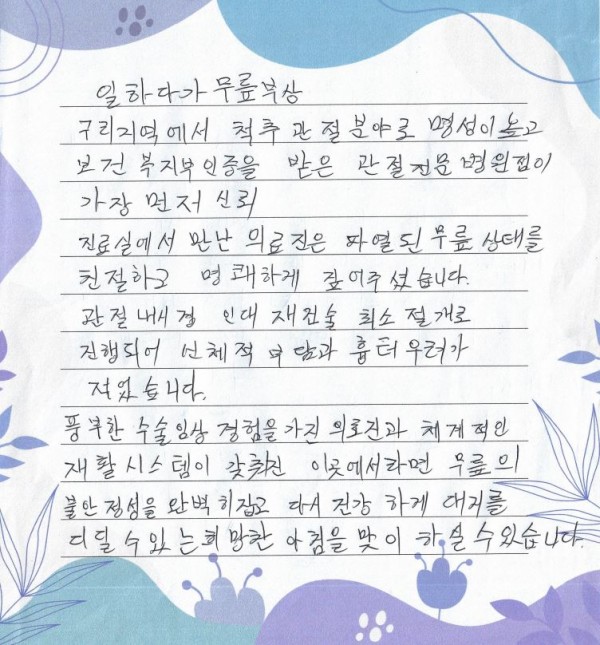 일하다가 무릎부상
구리지역에서 척추 관절분야로 명성이 높고
보건 복지부인증을 받은 관절전문병원점이
가장 먼저 신뢰
진료실에서 만난 의료진은 파열된 무릎 상태를
친절하고 명쾌하게 짚어주셨습니다.
관절 내시경 인대 재건술 최소 절개로
진행되어 신체적 부담과 흉터 우려가
적었습니다.
풍부한 수술임상 경험을 가진 의료진과 체계적인
재활시스템이 갖춰진 이곳에서라면 무릎의
불안정성을 완벽히잡고 다시 건강 하게 대지를
디딜 수 있는희망찬 아침을 맞이 하실 수있습니다.